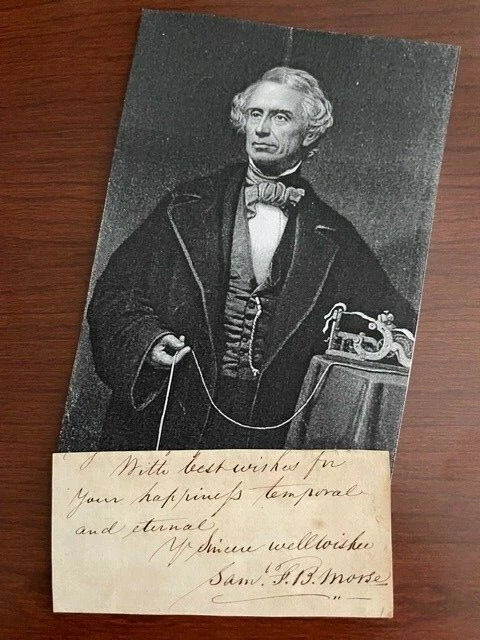 With best wishes for
your happineſs temporal
and eternal
Yr sincere wellwisher
Saml. F. B. Morse